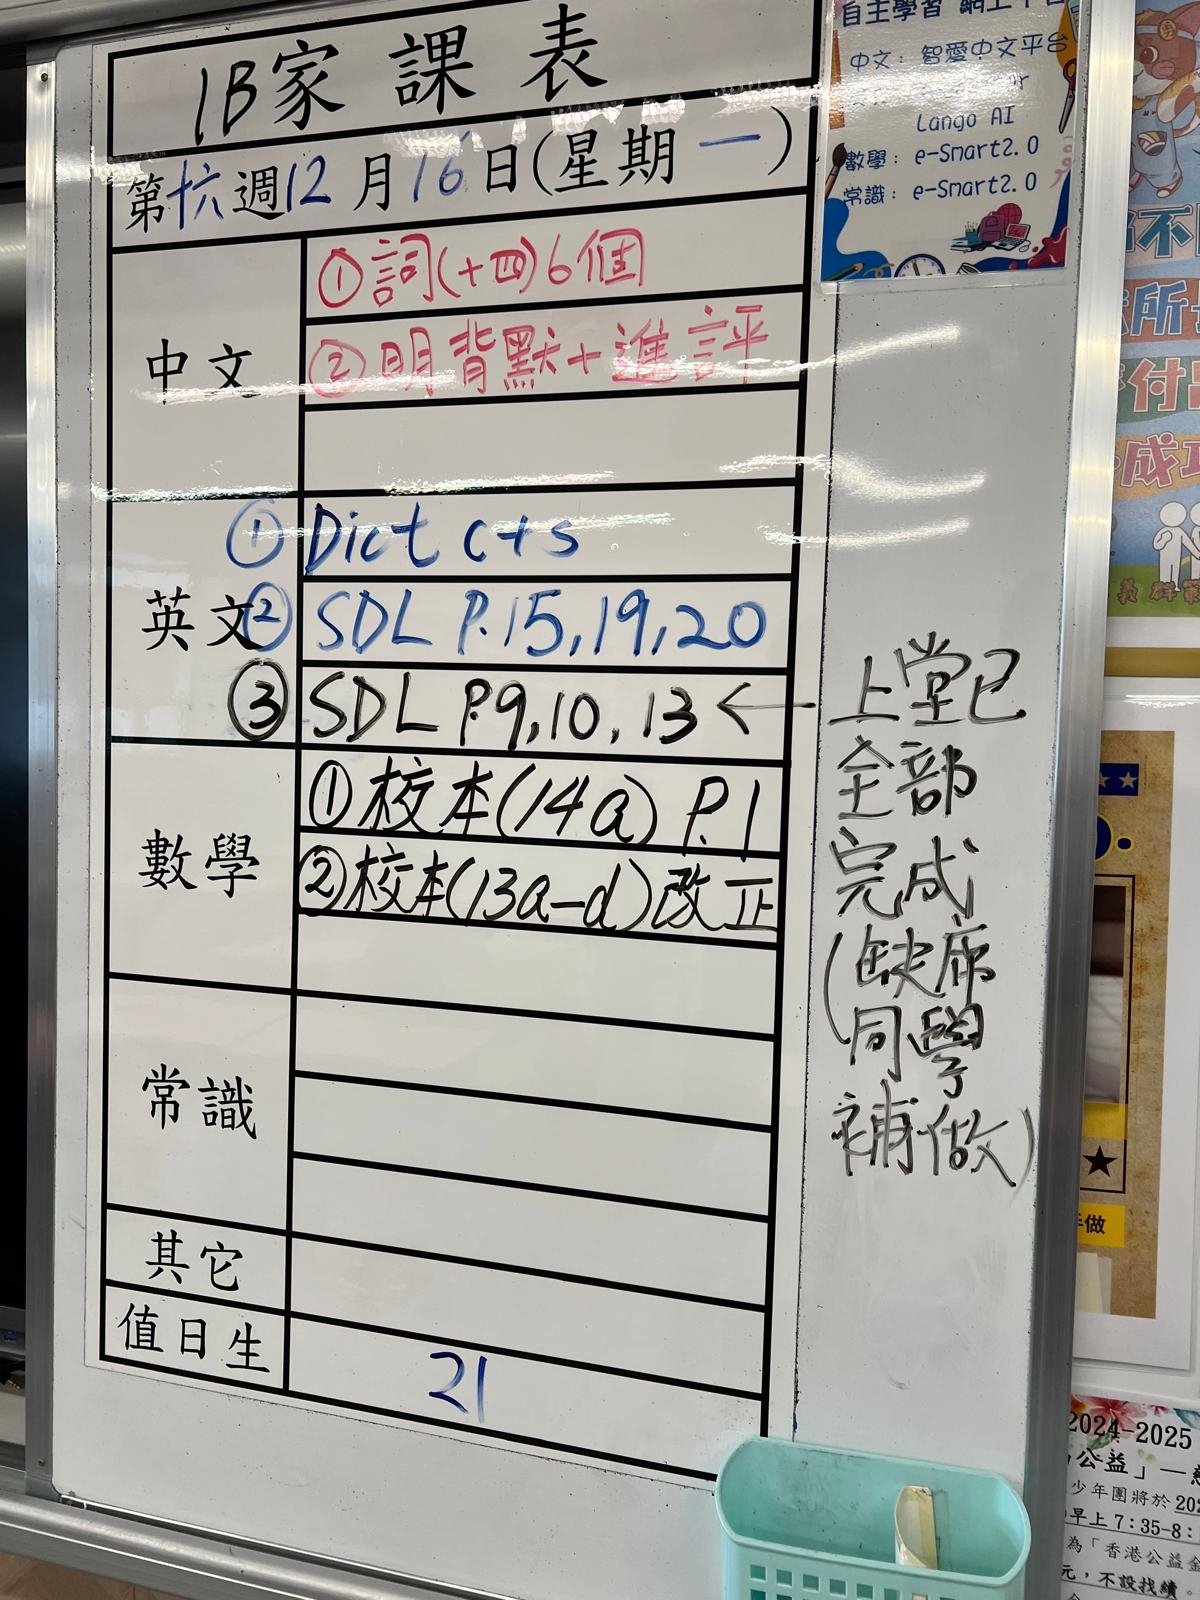 1B家課表
第十六週12月16日(星期一)
中文
①詞(十四)6個
②明背默+進評
英文
①Dict c+s
②SDL P.15,19,20
③SDL P.9,10,13←
上堂已
全部
完成
(缺席
同學
補做)
數學
①校本(14a) P.1
②校本(13a-d)改正
常識
其它
值日生
21
自主學習 網上平台
中文: 智愛中文平台
Lango AI
數學: e-Smart2.0
常識: e-Smart2.0
不
所
付
成功
做
2024-2025
公益」—
少年團將於 202
早上 7:35-8:
為「香港公益金
元,不設找續。